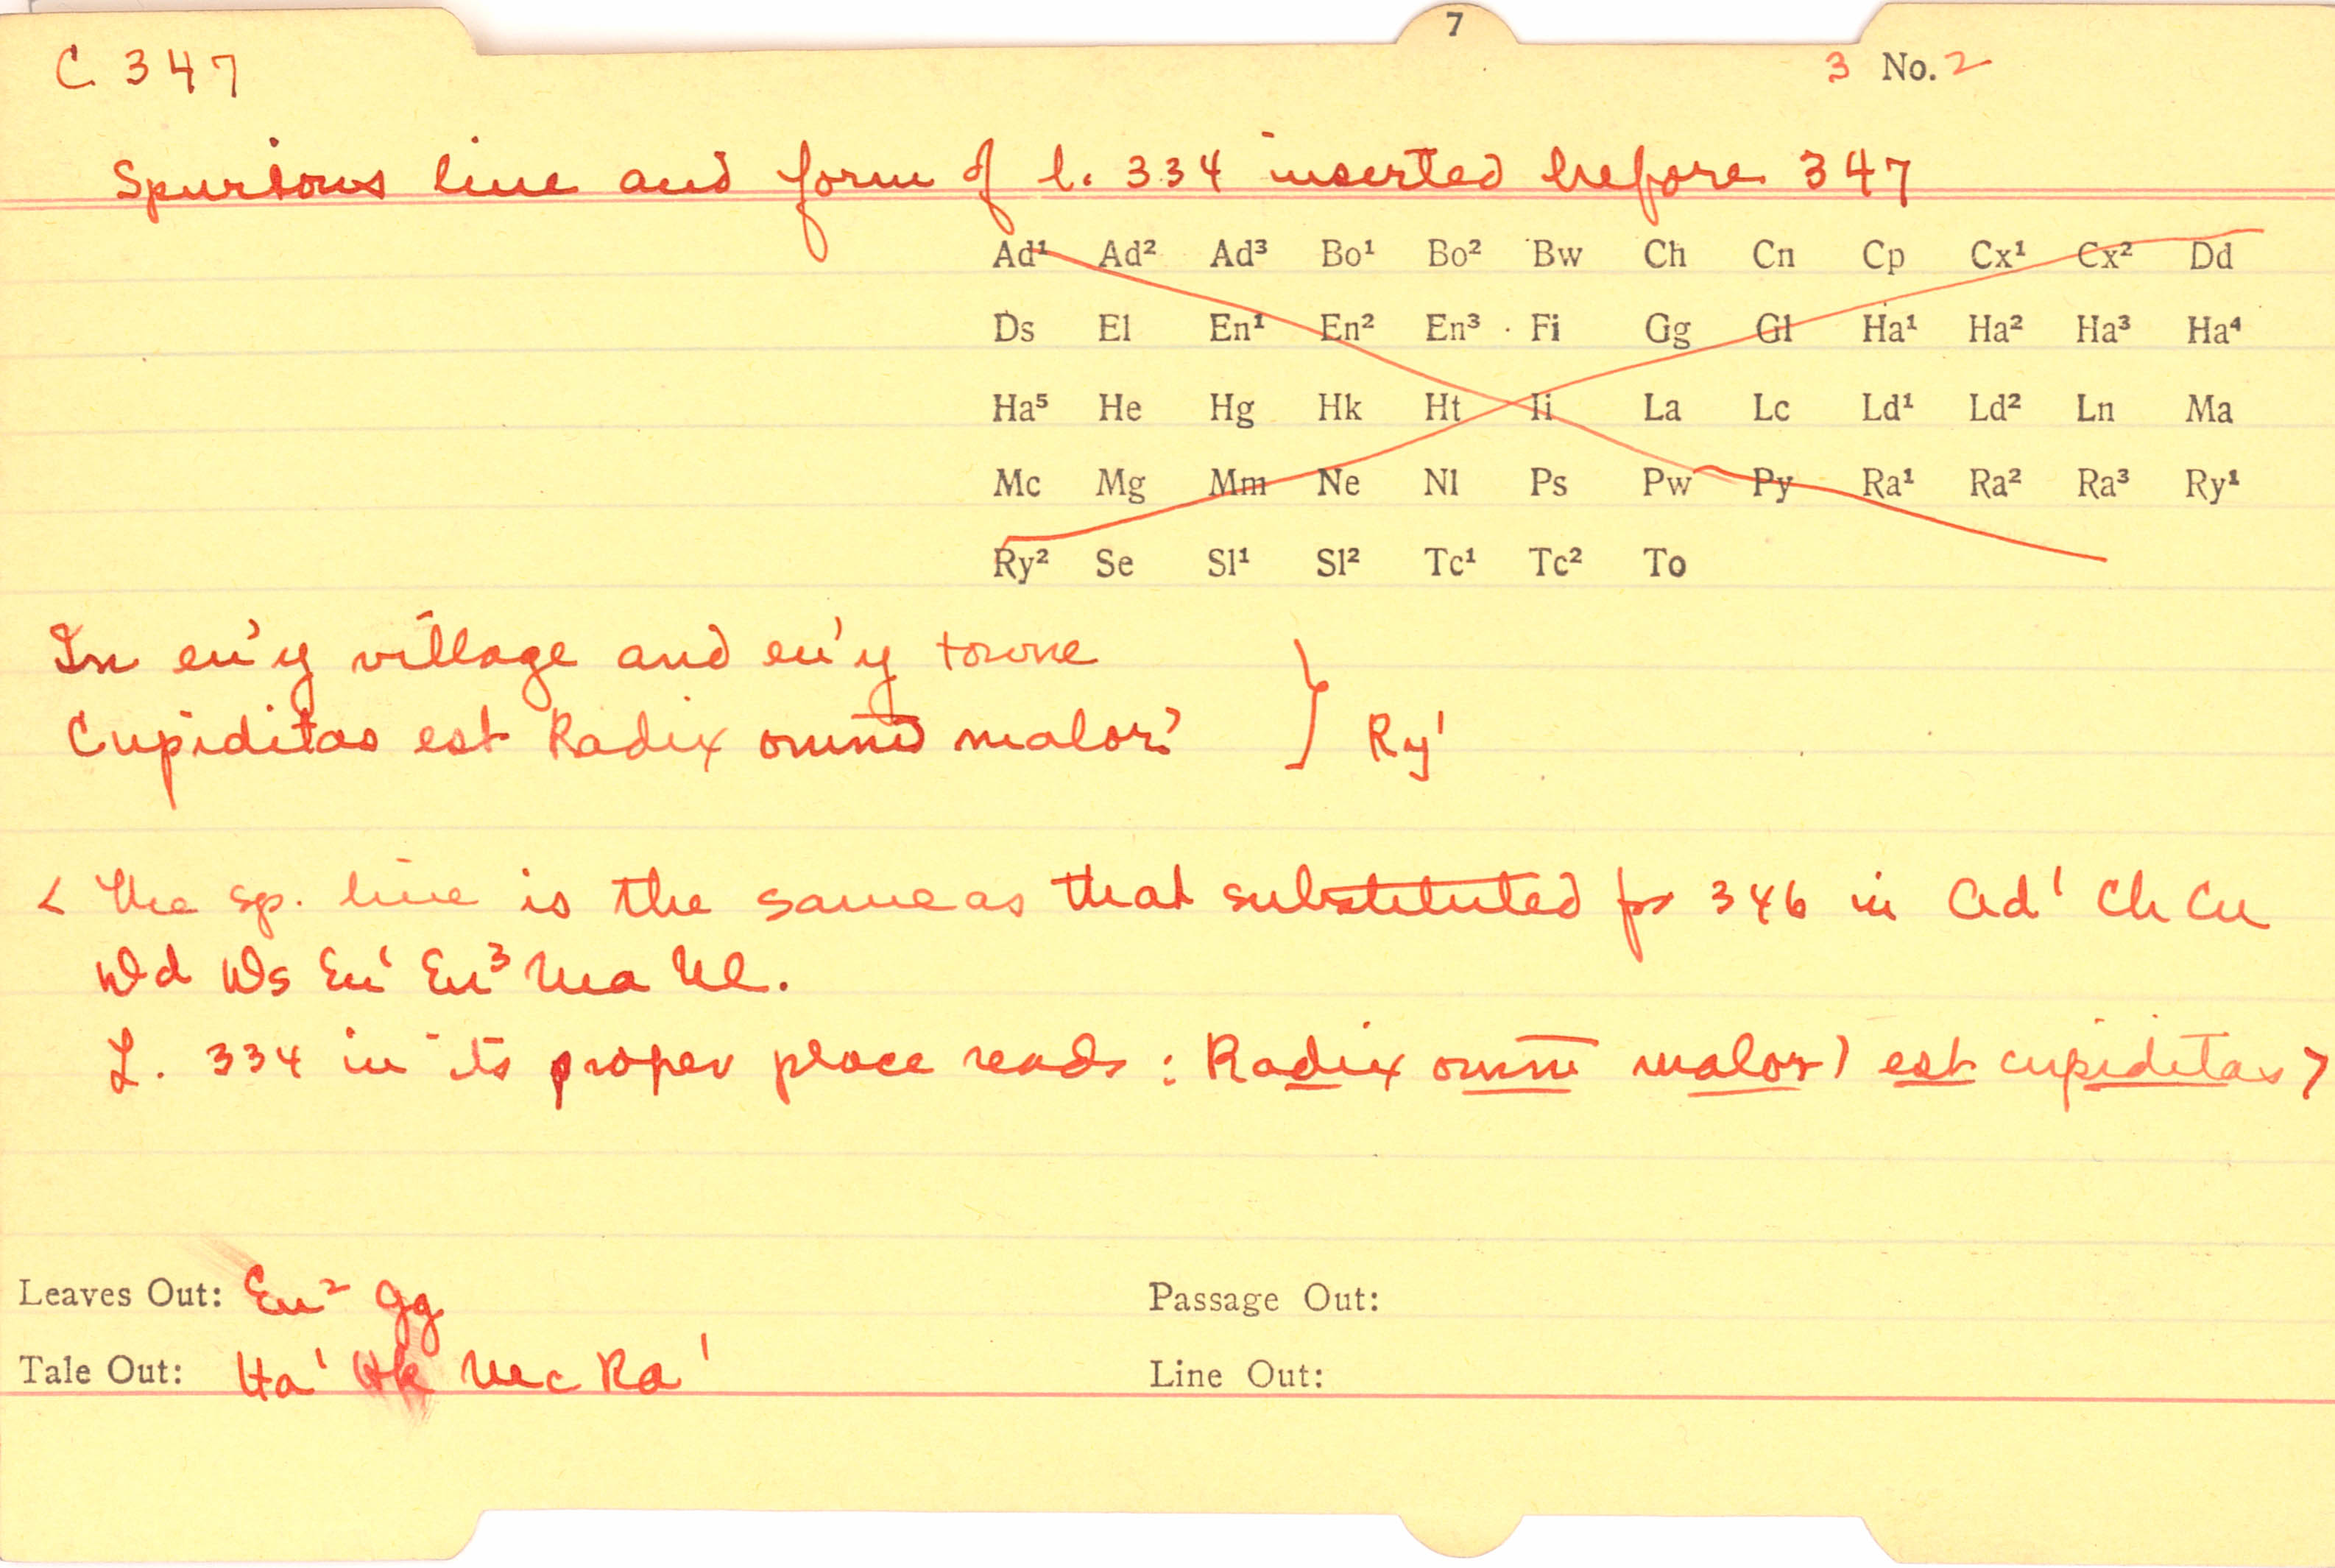 7
C 347
3 No. 2
Spurious line and form of l. 334 inserted before 347
Ad¹ Ad² Ad³ Bo¹ Bo² Bw Ch Cn Cp Cx¹ Cx² Dd
Ds El En¹ En² En³ Fi Gg Gl Ha¹ Ha² Ha³ Ha⁴
Ha⁵ He Hg Hk Ht Ii La Lc Ld¹ Ld² Ln Ma
Mc Mg Mm Ne Nl Ps Pw Py Ra¹ Ra² Ra³ Ry¹
Ry² Se Sl¹ Sl² Tc¹ Tc² To
In eu'y village and eu'y towne
Cupiditas est Radix malor' } Ry¹
< The sp. line is the same as that substituted for 346 in Ad¹ Ch Cn
Dd Ds En¹ En³ Ma Nl.
L. 334 in its proper place reads : Radix omni malor) est cupiditas >
Leaves Out: En² Gg
Passage Out:
Tale Out: Ha¹ Hk Mc Ra¹
Line Out: